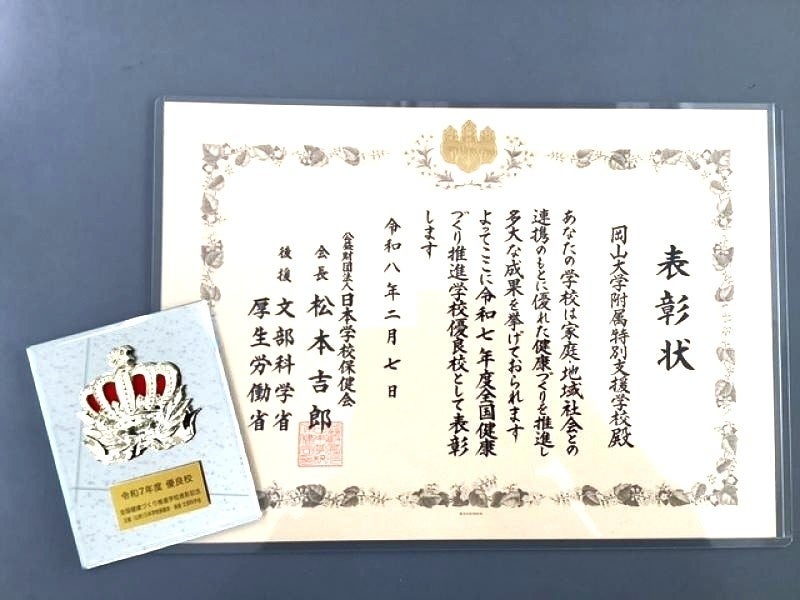 表彰状
岡山大学附属特別支援学校殿
あなたの学校は家庭・地域社会との
連携のもとに優れた健康づくりを推進し
多大な成果を挙げておられます
よってここに令和七年度全国健康
づくり推進学校優良校として表彰
します
令和八年二月七日
公益財団法人日本学校保健会
会長 松本吉郎
後援 文部科学省
厚生労働省
令和7年度 優良校
全国健康づくり推進学校表彰記念